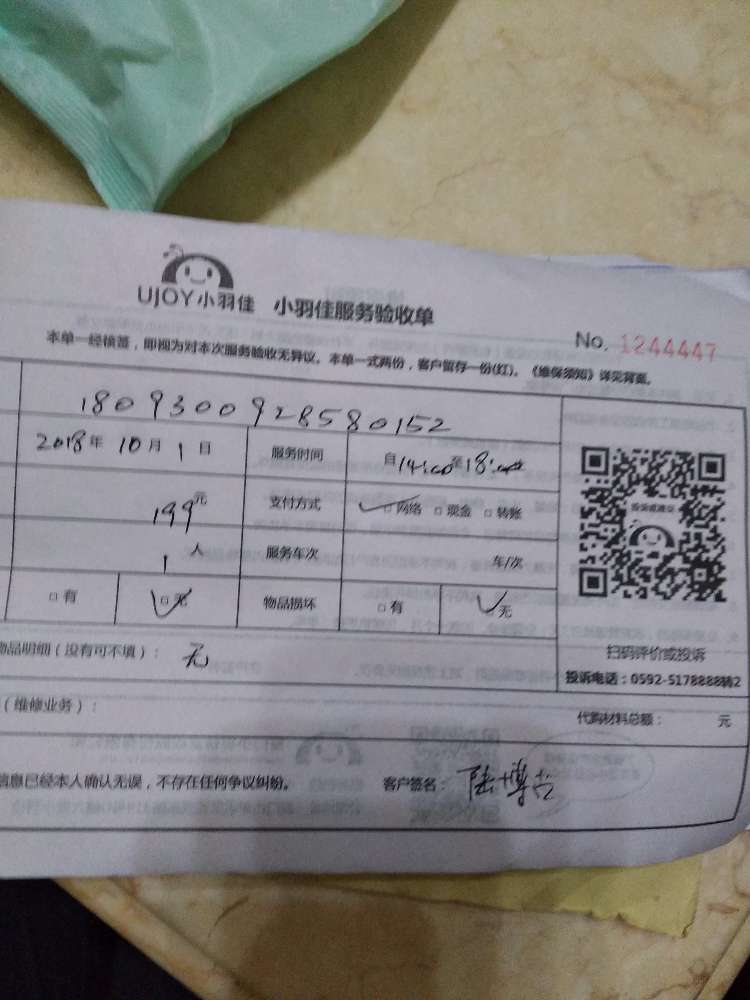 UJOY小羽佳 小羽佳服务验收单
No. 1244447
本单一经核签，即视为对本次服务验收无异议。本单一式两份，客户留存一份(红)。《维保须知》详见背面。
180930092858０152
2018年 10月 1日 服务时间 自14:00至18:00
199元 支付方式 □网络 □现金 □转账
投诉或建议
1人 服务车次 车/次
□有 □无 物品损坏 □有 □无
物品明细（没有可不填）： 无
扫码评价或投诉
投诉电话：0592-5178888转2
（维修业务）： 代购材料总额： 元
信息已经本人确认无误，不存在任何争议纠纷。 客户签名：